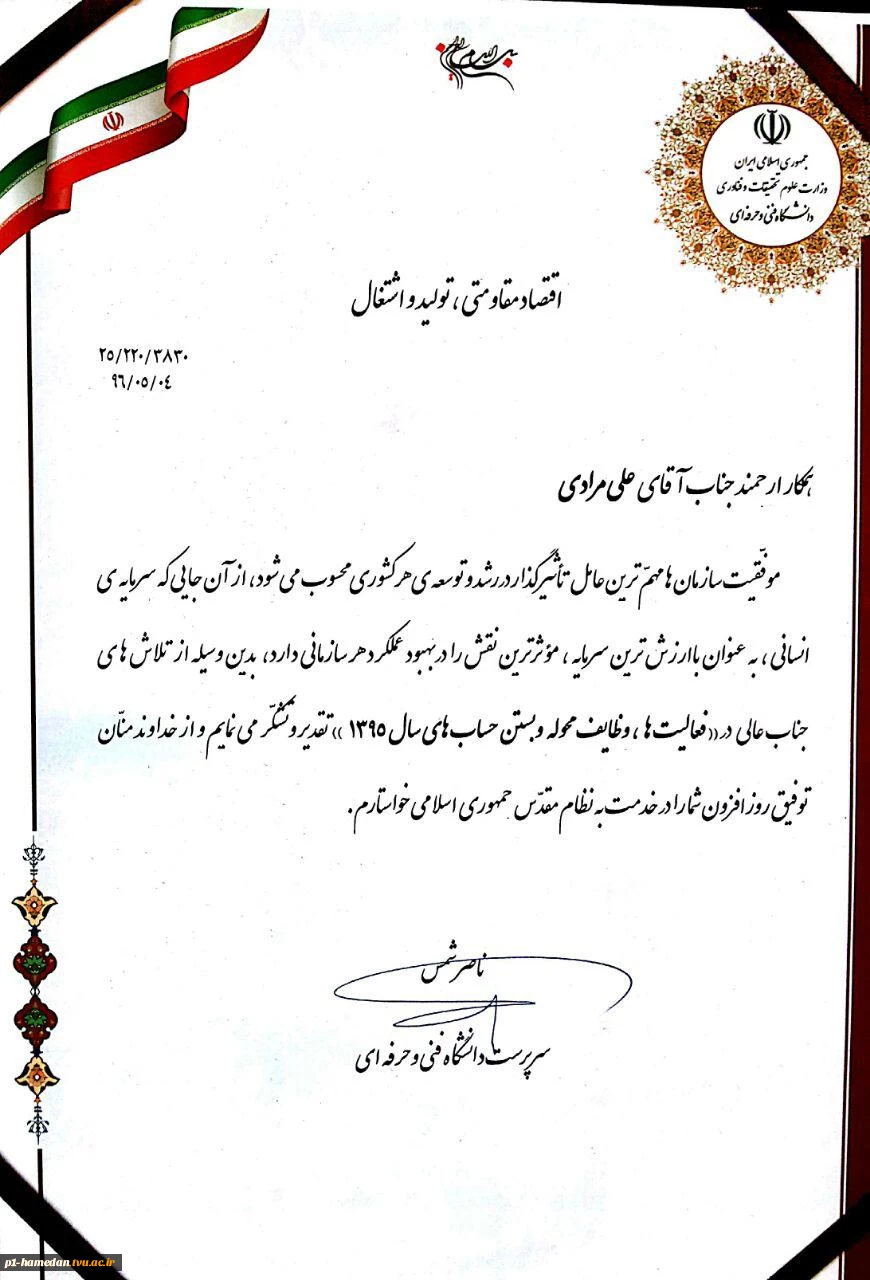 بسم الله الرحمن الرحیم
جمهوری اسلامی ایران
وزارت علوم تحقیقات و فناوری
دانشگاه فنی و حرفه ای
اقتصاد مقاومتی ، تولید و اشتغال
۲۵/۲۲۰/۳۸۳۰
۹۶/۰۵/۰۴
همکار ارجمند جناب آقای علی مرادی
موفّقیت سازمان ها مهمّ ترین عامل تأثیرگذار در رشد و توسعه ی هر کشوری محسوب می شود، از آن جایی که سرمایه ی
انسانی ، به عنوان باارزش ترین سرمایه ، مؤثرترین نقش را در بهبود عملکرد هر سازمانی دارد، بدین وسیله از تلاش های
جناب عالی در «فعالیت ها ، وظایف محوله و بستن حساب های سال ۱۳۹۵ » تقدیر و تشکّر می نمایم و از خداوند منّان
توفیق روز افزون شما را در خدمت به نظام مقدّس جمهوری اسلامی خواستارم .
ناصر شمس
سرپرست دانشگاه فنی و حرفه ای
p1-hamedan.tvu.ac.ir